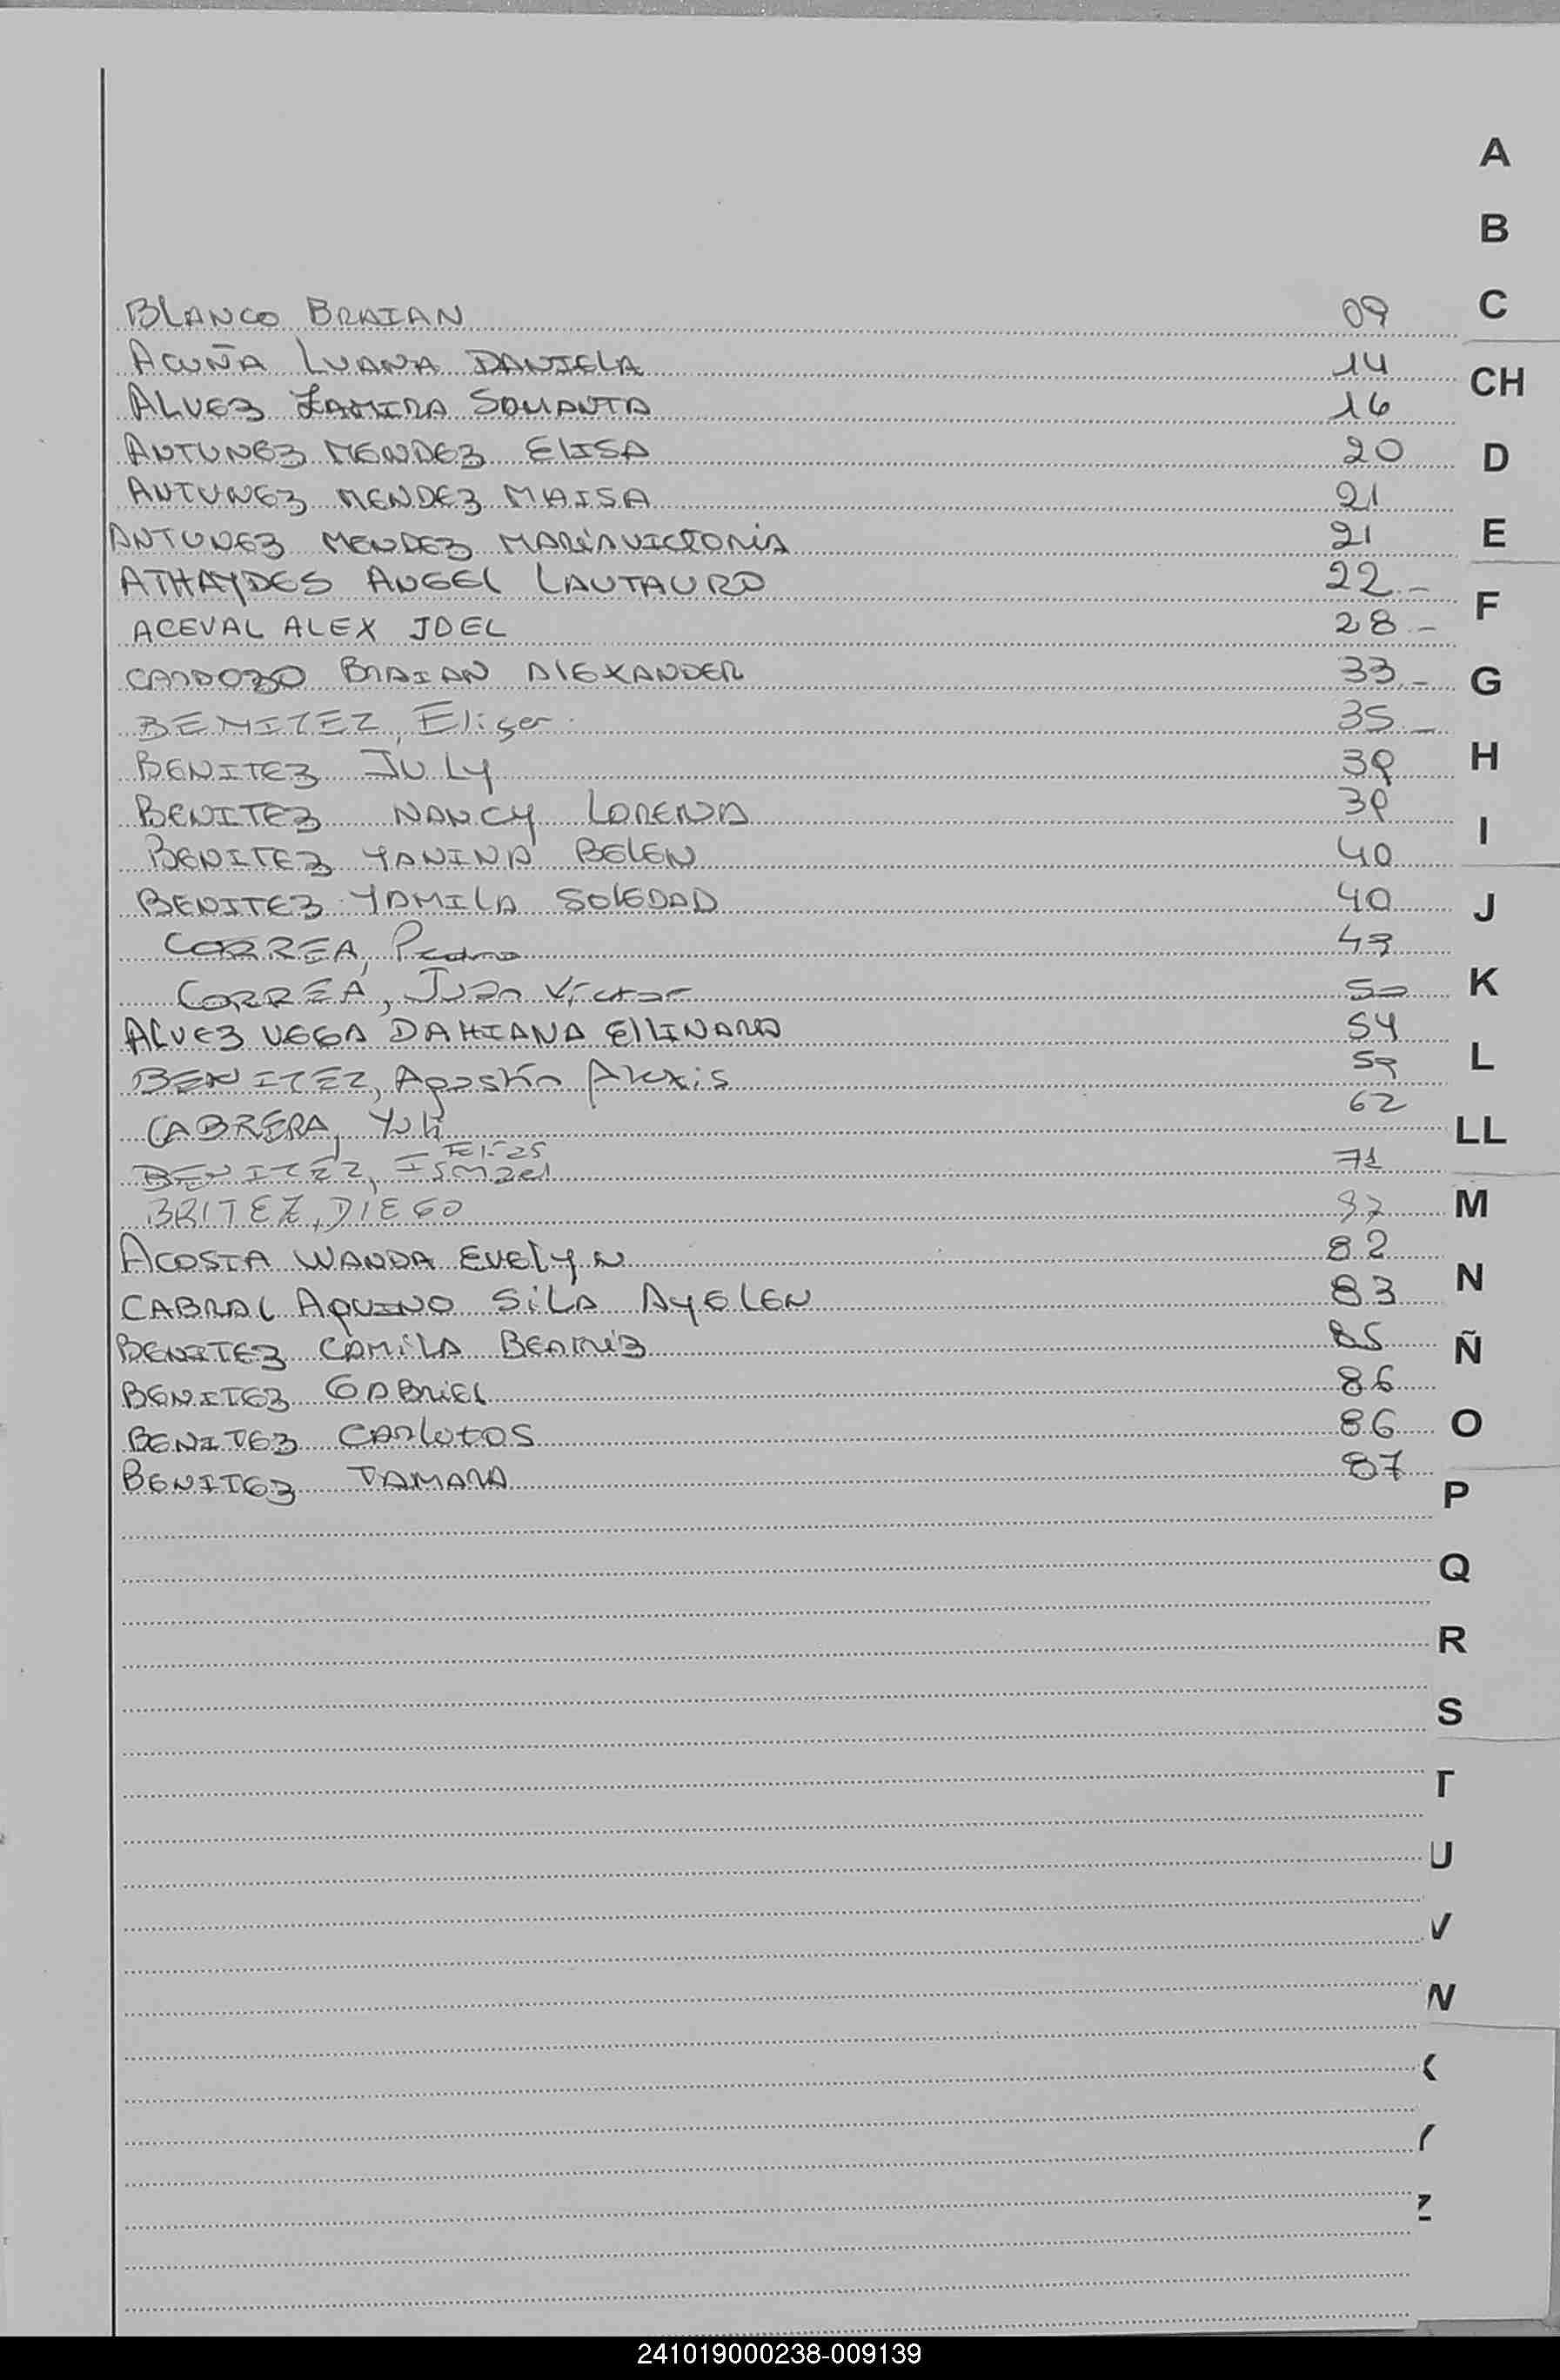 BLANCO BRAIAN 09
ACUÑA LUANA DANIELA 14
ALVEZ ZAMIRA SAMANTA 16
ANTUNEZ MENDEZ ELISA 20
ANTUNEZ MENDEZ MAISA 21
ANTUNEZ MENDEZ MARÍA VICTORIA 21
ATHAYDES ANGEL LAUTAURO 22.-
ACEVAL ALEX JOEL 28.-
CARDOZO BRAIAN ALEXANDER 33.-
BENITEZ, Eliseo 35.-
BENITEZ JULY 39
BENITEZ NANCY LORENA 39
BENITEZ YANINA BELEN 40
BENITEZ YAMILA SOLEDAD 40
CORREA, Pedro 49
CORREA, Juan Victor 50
ALVEZ VEGA DAHIANA 54
BENITEZ, Agostín Alexis 59
CABRERA, Yuli 62
BENITEZ, Ismael 71
BRITEZ, DIEGO
ACOSTA WANDA EVELYN 82
CABRAL AQUINO SILA AYELEN 83
BENITEZ CAMILA BEATRÍZ 85
BENITEZ GABRIEL 86
BENITEZ CARLOTOS 86
BENITEZ TAMARA 87
A
B
C
CH
D
E
F
G
H
I
J
K
L
LL
M
N
Ñ
O
P
Q
R
S
T
U
V
W
X
Y
Z
241019000238-009139